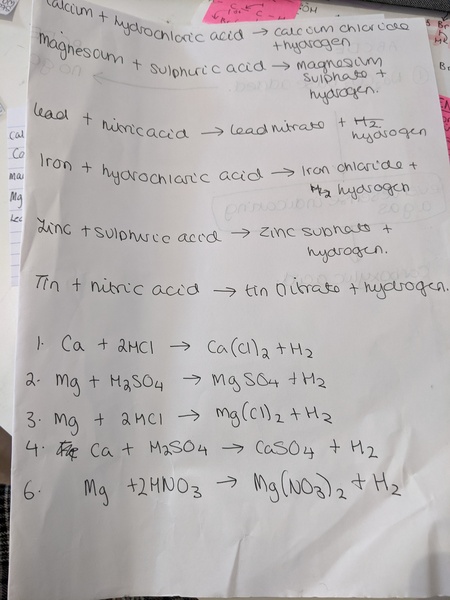 calcium + hydrochloric acid → calcium chloride
+ hydrogen
magnesium + sulphuric acid → magnesium
sulphate +
hydrogen.
Lead + nitric acid → lead nitrate + H2
hydrogen
Iron + hydrochloric acid → Iron chloride +
H2 hydrogen
Zinc + sulphuric acid → zinc sulphate +
hydrogen.
Tin + nitric acid → tin nitrate + hydrogen.
1. Ca + 2HCl → Ca(Cl)2 + H2
2. Mg + H2SO4 → MgSO4 + H2
3. Mg + 2HCl → mg(Cl)2 + H2
4. Ca + H2SO4 → CaSO4 + H2
6. Mg + 2HNO3 → Mg(NO3)2 + H2